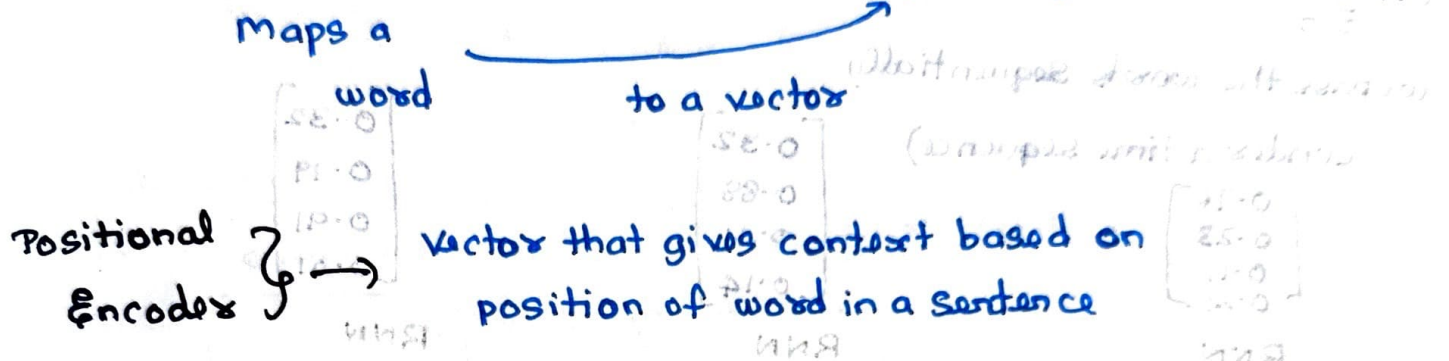 Maps a
word to a vector
Positional
Encoder → vector that gives context based on
position of word in a sentence